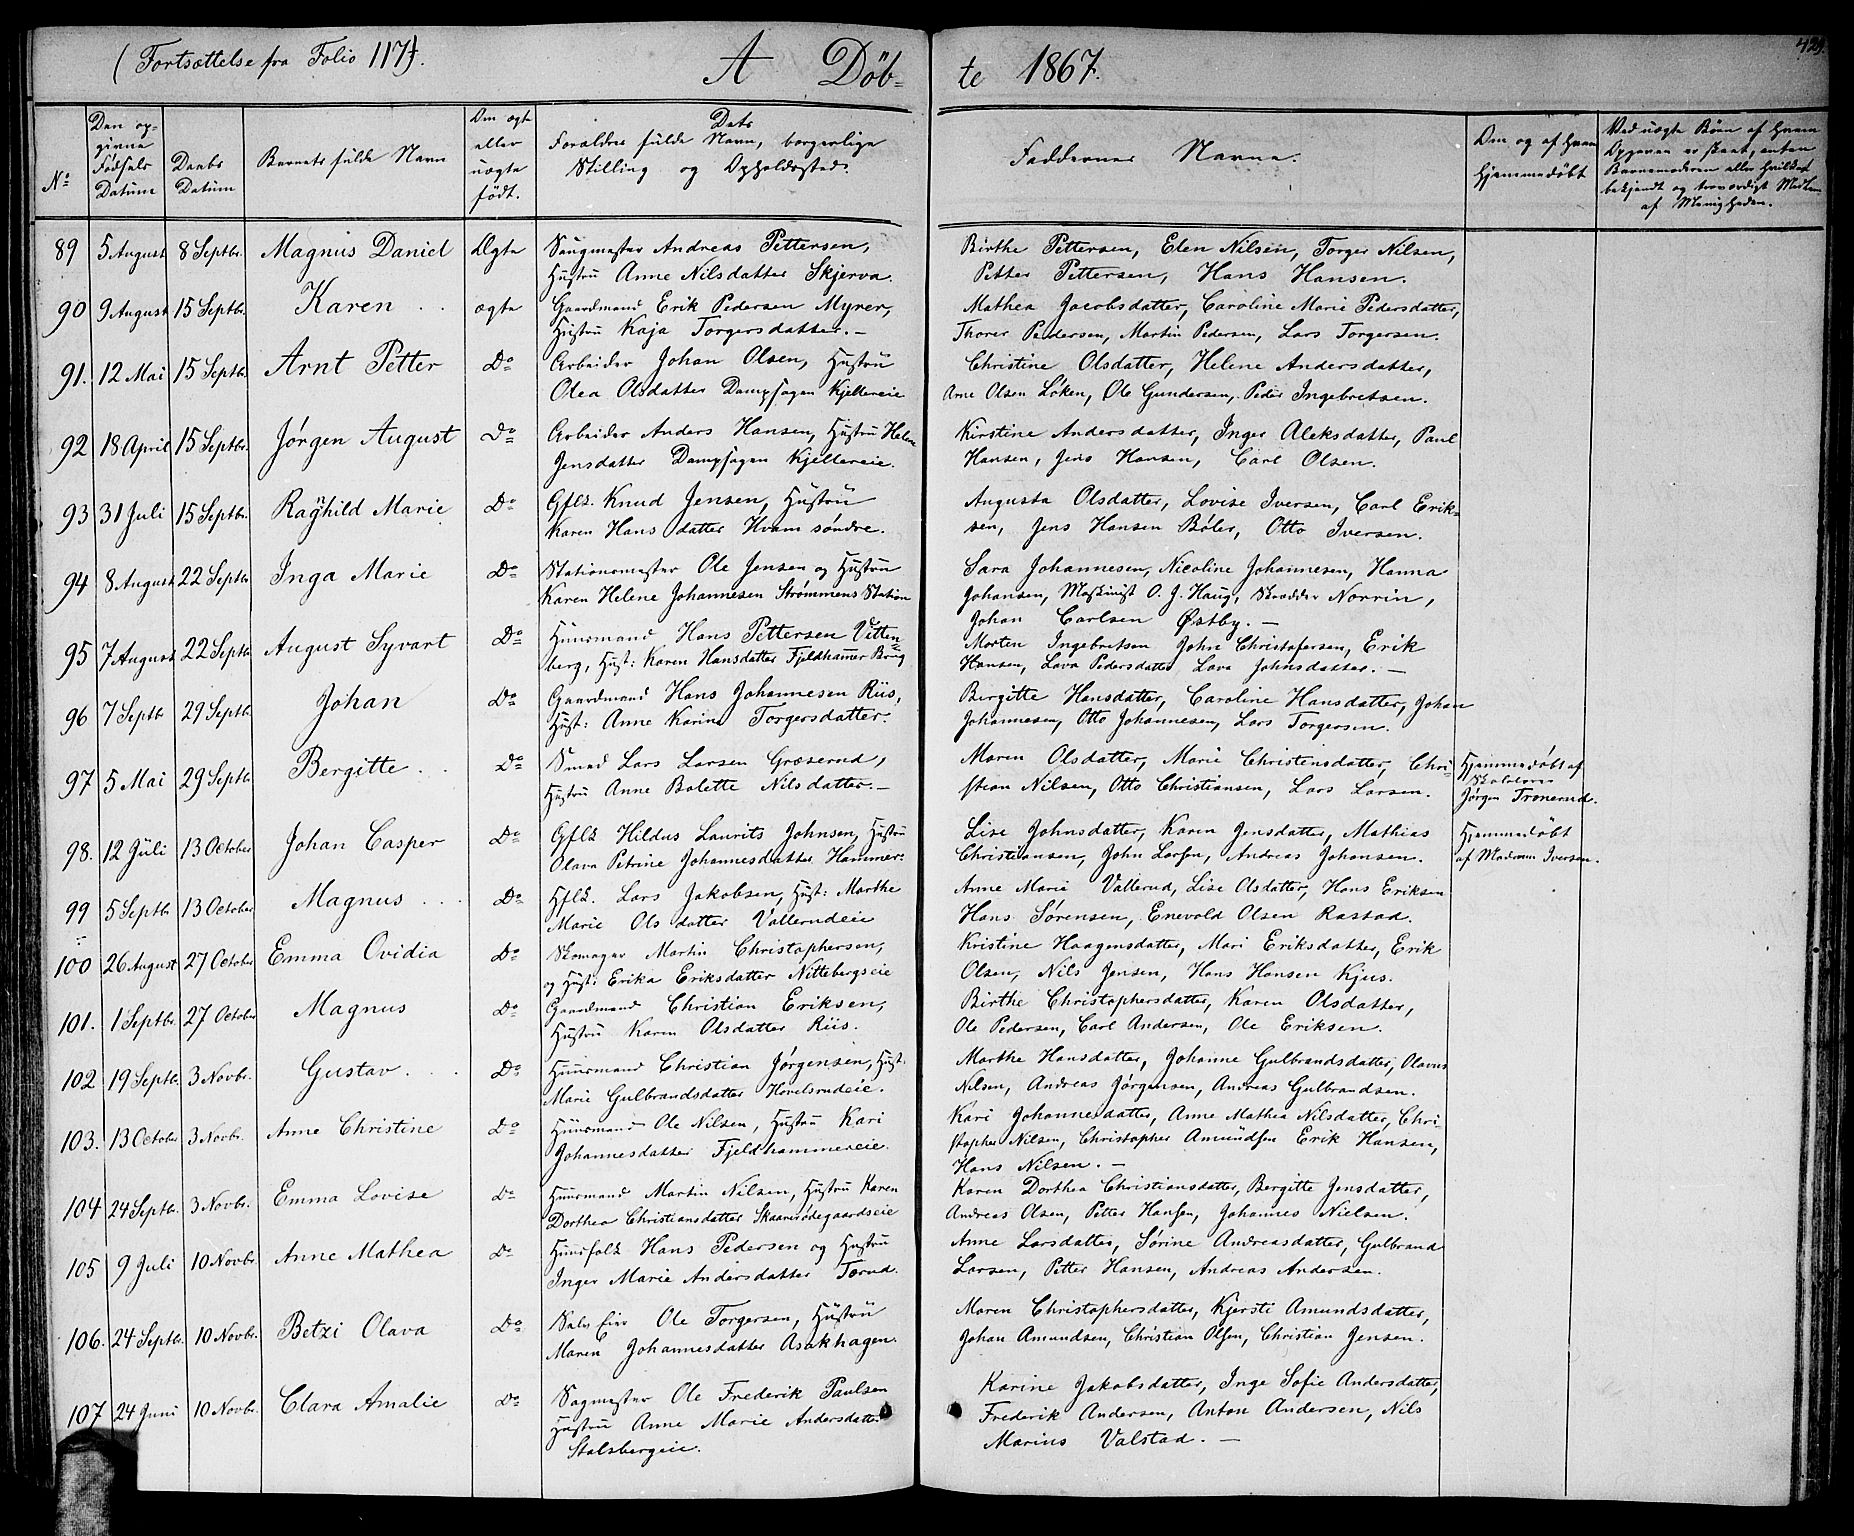 (Fortsættelse fra Folio 117).
A Döb- te 1867.
429.
No
Den op-
givne
Fødsels
Datum
Daabs
Datum
Barnets fulde Navn
Om ægte
eller
uægte
født.
Dets
Forældres fulde Navn, borgerlige
Stilling og Opholdssted.
Faddernes Navne.
Om og af hvem
hjemmedøbt
Ved uægte Børn af hvem
Opgaven er skeet, enten
Barnemoderen eller hvilket
bekjendt og troværdigt Medlem
af Menigheden.
89 5 August 8 Septbr. Magnus Daniel Ægte Saugmester Andreas Pettersen, Birthe Pettersen, Elen Nilsen, Torger Nilsen,
Hustru Anne Nilsdatter Skjerva. Petter Pettersen, Hans Hansen.
90 9 August 15 Septbr. Karen ægte Gaardmand Erik Pedersen Myrer, Mathea Jacobsdatter, Caroline Marie Pedersdatter,
Hustru Kaja Torgersdatter.- Thorer Pedersen, Martin Pedersen, Lars Torgersen.
91. 12 Mai 15 Septbr. Arnt Petter Do Arbeider Johan Olsen, Hustru Christine Olsdatter, Helene Andersdatter,
Olea Olsdatter Dampsagen Kjellereie Arne Olsen Løken, Ole Gundersen, Peder Ingebretsen.
92 18 April 15 Septbr. Jørgen August Do Arbeider Anders Hansen, Hustru Helene Kirstine Andersdatter, Inger Aleksdatter, Paul
Jensdatter Dampsagen Kjellereie. Hansen, Jens Hansen, Carl Olsen.
93 31 Juli 15 Septbr. Rayhild Marie Do Gflk. Knud Jensen, Hustru Augusta Olsdatter, Lovise Iversen, Carl Erik-
Karen Hansdatter Hvam søndre. sen, Jens Hansen Bøler, Otto Iversen.
94 8 August 22 Septbr Inga Marie Do Stationsmester Ole Jensen og Hustru Sara Johannesen, Nicoline Johannesen, Hanna
Karen Helene Johannesen Strømmens Station Johansen, Maskinist O. J. Haug, Skrædder Norrin,
Johan Carlsen Østby.-
95 7 August 22 Septb August Syvart Do Huusmand Hans Pettersen Vitten- Morten Ingebretsen John Christofersen, Erik
berg, Hust: Karen Hansdatter Fjeldhamer Brug Hansen, Lava Pedersdatter Lava Johnsdatter.-
96 7 Septb 29 Septb. Johan Do Gaardmand Hans Johannesen Riis, Bergitte Hansdatter, Caroline Hansdatter, Johan
Hust: Anne Karine Torgersdatter. Johannesen, Otto Johannesen, Lars Torgersen.
97 5 Mai 29 Septb. Bergitte Do Smed Lars Larsen Græserud, Maren Olsdatter, Marie Christensdatter, Chri- Hjemmedøbt af
Hustru Anne Bolette Nilsdatter.- stian Nilsen, Otto Christiansen, Lars Larsen. Skolelærer
Jørgen Tronerud.
98. 12 Juli 13 October Johan Casper Do Gflk Hildus Laurits Johnsen, Hustru Lise Johnsdatter, Karen Jensdatter, Mathias Hjemmedøbt
Olava Petrine Johannesdatter Hammer. Christiansen, John Larsen, Andreas Johansen. af Madam Iversen.
99 5 Septb 13 October Magnus Do Hflk. Lars Jakobsen, Hust: Marthe Anne Marie Vallerud, Lise Olsdatter, Hans Eriksen
Marie Olsdatter Vallerudeie Hans Sørensen, Enevold Olsen Rastad.
100 26 August 27 October Emma Ovidia Do Skomager Martin Christophersen, Kristine Haagensdatter, Mari Eriksdatter, Erik
og Hust: Erika Eriksdatter Nittebergseie Olsen, Nils Jensen, Hans Hansen Kjus.
101. 1 Septbr. 27 October Magnus Do Gaardmand Christian Eriksen, Birthe Christophersdatter, Karen Olsdatter,
Hustru Karen Olsdatter Riis. Ole Pedersen, Carl Andersen, Ole Eriksen.
102 19 Septb. 3 Novbr. Gustav Do Huusmand Christian Jørgensen, Hust: Marthe Hansdatter, Johanne Gulbrandsdatter, Olavus
Marie Gulbrandsdatter Hovelsrudeie. Nilsen, Andreas Jørgensen, Andreas Gulbrandsen.
103. 13 October 3 Novbr. Anne Christine Do Huusmand Ole Nilsen, Hustru Kari Kari Johannesdatter, Anne Mathea Nilsdatter, Chri-
Johannesdatter Fjeldhammereie. stopher Nilsen, Christopher Amundsen Erik Hansen,
Hans Nilsen.-
104 24 Septbr. 3 Novbr. Emma Lovise Do Huusmand Martin Nilsen, Hustru Karen Karen Dorthea Christiansdatter, Bergitte Jensdatter,
Dorthea Christiansdatter Skaarsødegaardseie Andreas Olsen, Petter Hansen, Johannes Nielsen.
105 9 Juli 10 Novbr. Anne Mathea Do Huusfolk Hans Pedersen og Hustru Anne Larsdatter, Sørine Andreasdatter, Gulbrand
Inger Marie Andersdatter Torud. Larsen, Petter Hansen, Andreas Andersen.
106. 24 Septbr. 10 Novbr. Betzi Olava Do Selv Eier Ole Torgersen, Hustru Maren Christophersdatter, Kjersti Amundsdatter,
Maren Johannesdatter Asakhagen. Johan Amundsen, Christian Olsen, Christian Jensen.
107 24 Juni 10 Novbr. Clara Amalie Do Sagmester Ole Frederik Paulsen Karine Jakobsdatter, Inge Sofie Andersdatter,
Hustru Anne Marie Andersdatt. Frederik Andersen, Anton Andersen, Nils
Stalsbergeie. Marius Valstad.-